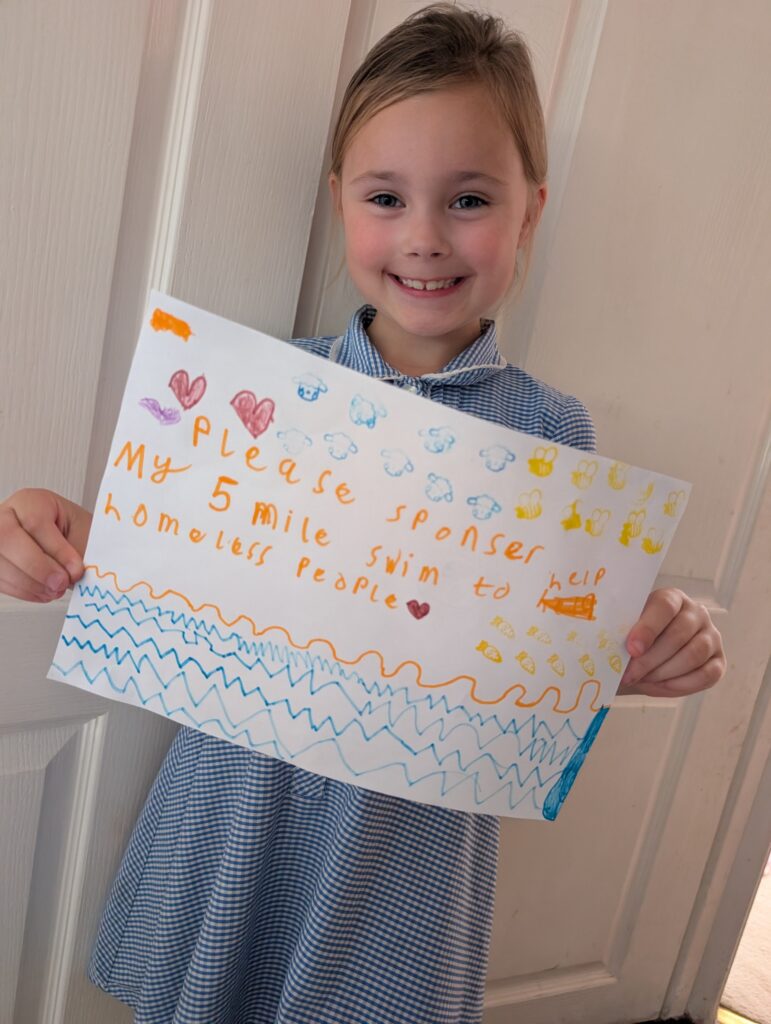 Please sponser
My 5 mile swim to help
homeless people